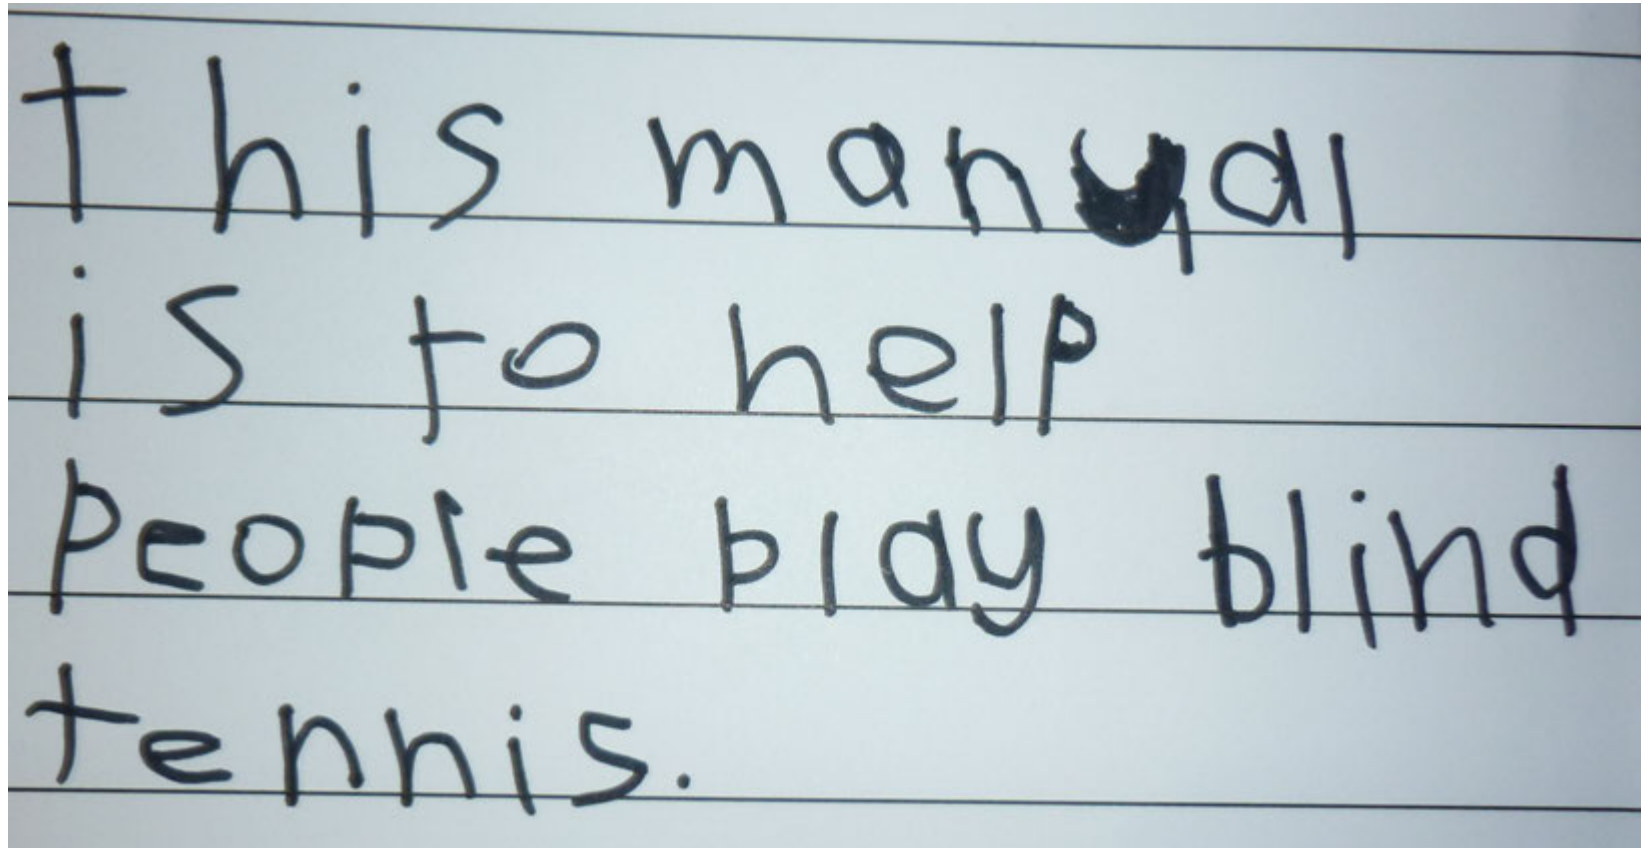 this manual
is to help
people play blind
tennis.